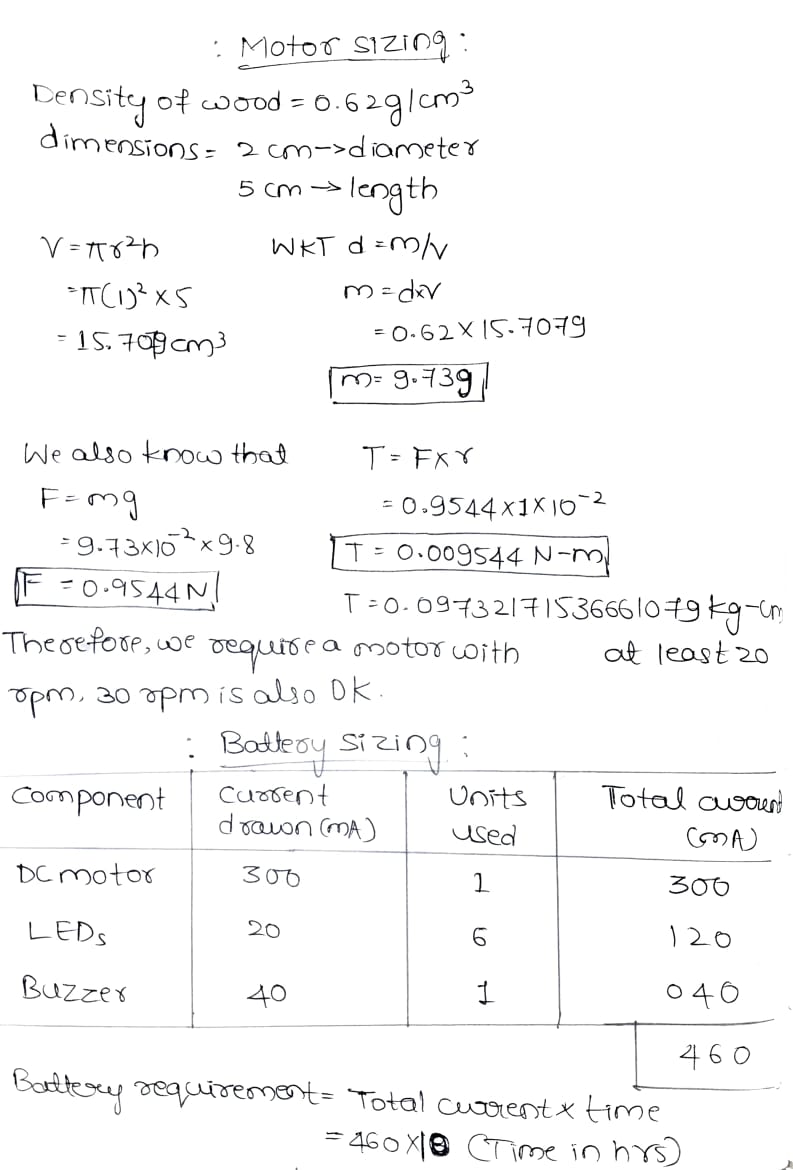 : Motor sizing :
Density of wood = 0.62g/cm³
dimensions = 2 cm -> diameter
5 cm → length
V = πr²h
= π(1)² × 5
= 15.707cm³
WKT d = m/v
m = d×v
= 0.62 × 15.7079
m = 9.739
We also know that
F = mg
= 9.73×10⁻² × 9.8
F = 0.9544 N
T = F×r
= 0.9544 × 1 × 10⁻²
T = 0.009544 N-m
T = 0.09732171536661079 kg-cm
Therefore, we require a motor with at least 20
rpm, 30 rpm is also OK.
: Battery Sizing :
Component Current drawn (mA) Units used Total current (mA)
DC motor 300 1 300
LEDs 20 6 120
Buzzer 40 1 040
460
Battery requirement = Total current × time
= 460 × (Time in hrs)